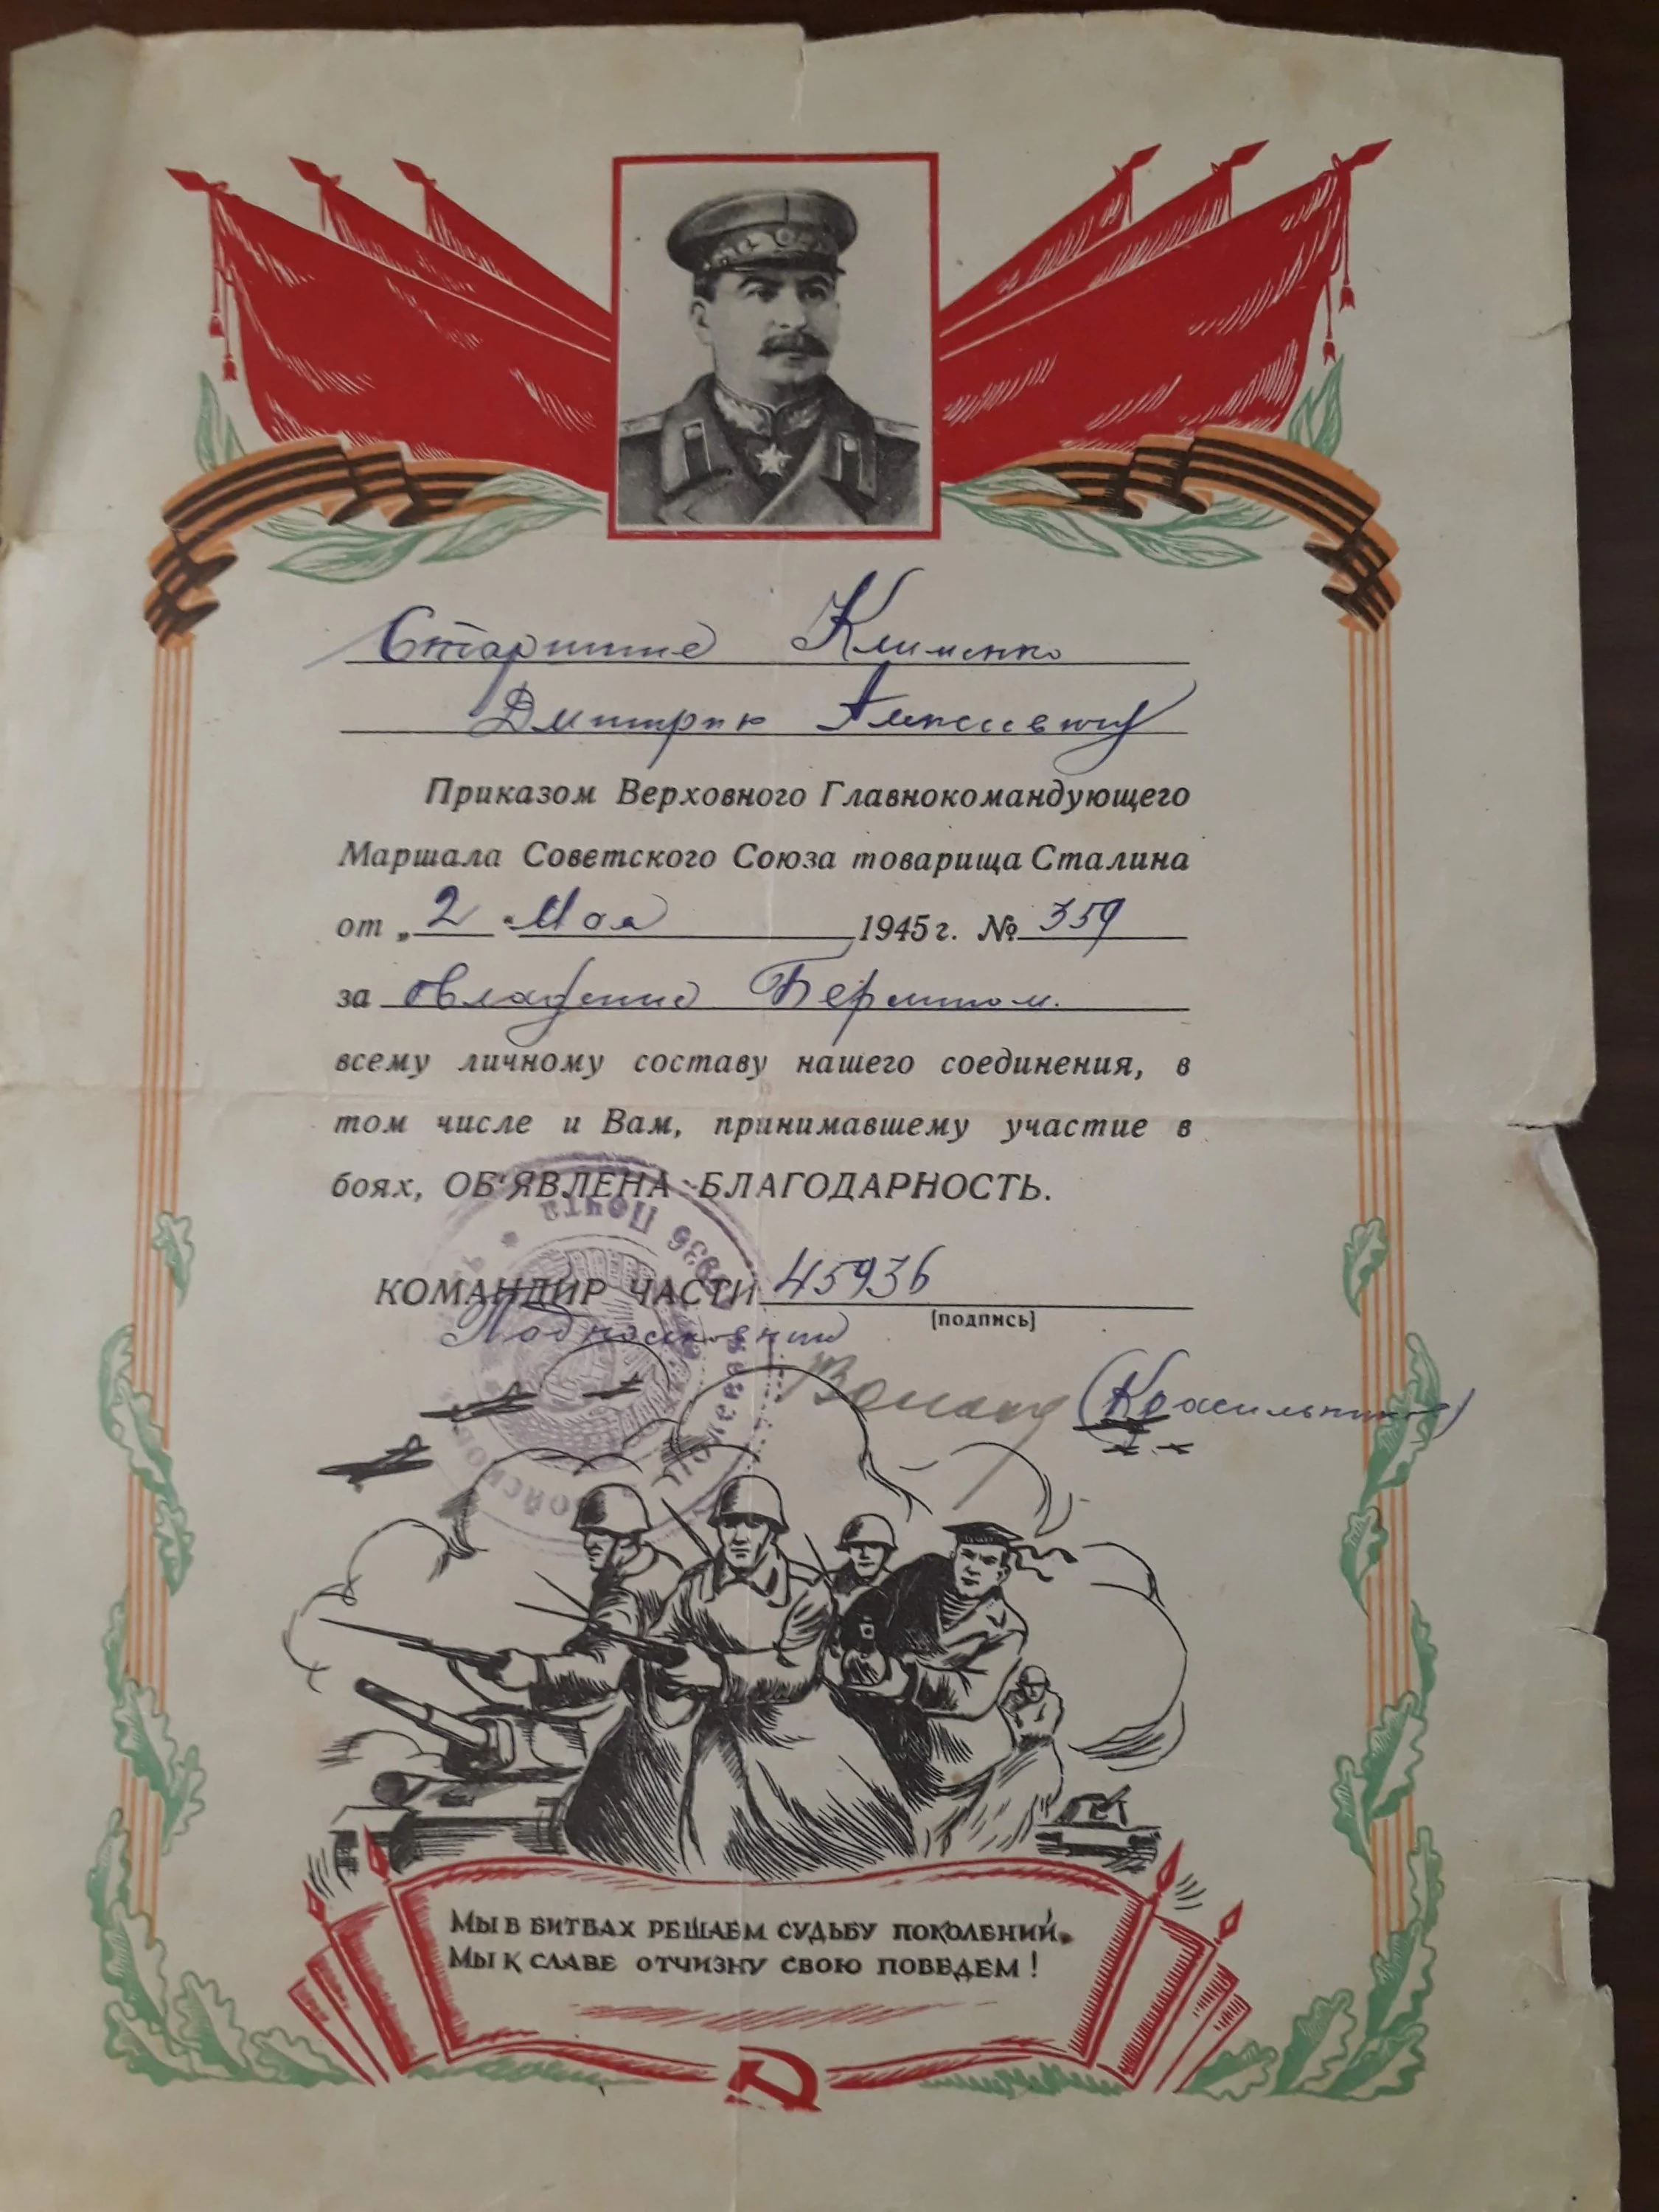 Старшине Клименко
Дмитрию Алексеевичу
Приказом Верховного Главнокомандующего
Маршала Советского Союза товарища Сталина
от „2 Мая 1945 г. № 359
за овладение Берлином.
всему личному составу нашего соединения, в
том числе и Вам, принимавшему участие в
боях, ОБ'ЯВЛЕНА БЛАГОДАРНОСТЬ.
КОМАНДИР ЧАСТИ 45936
(подпись)
Подполковник
(Красильников)
Полевая Почта
МЫ В БИТВАХ РЕШАЕМ СУДЬБУ ПОКОЛЕНИЙ,
МЫ К СЛАВЕ ОТЧИЗНУ СВОЮ ПОВЕДЕМ!